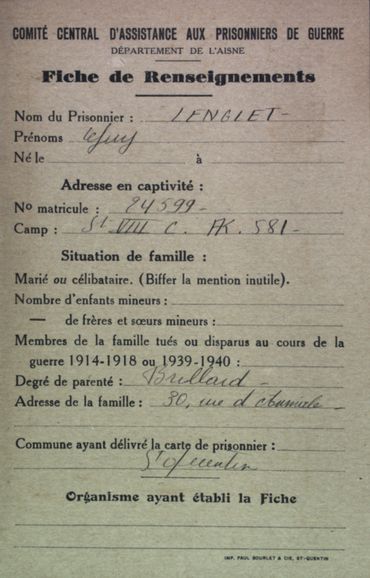 COMITÉ CENTRAL D'ASSISTANCE AUX PRISONNIERS DE GUERRE
DÉPARTEMENT DE L'AISNE
Fiche de Renseignements
Nom du Prisonnier : LENGLET -
Prénoms
Né le à
Adresse en captivité :
No matricule : 24599 -
Camp : St VIII C. AK. 581 -
Situation de famille :
Marié ou célibataire. (Biffer la mention inutile).
Nombre d'enfants mineurs :
— de frères et sœurs mineurs :
Membres de la famille tués ou disparus au cours de la
guerre 1914-1918 ou 1939-1940 :
Degré de parenté :
Adresse de la famille : 30, rue d'
Commune ayant délivré la carte de prisonnier :
St Quentin
Organisme ayant établi la Fiche
IMP. PAUL BOURLET & CIE, ST-QUENTIN